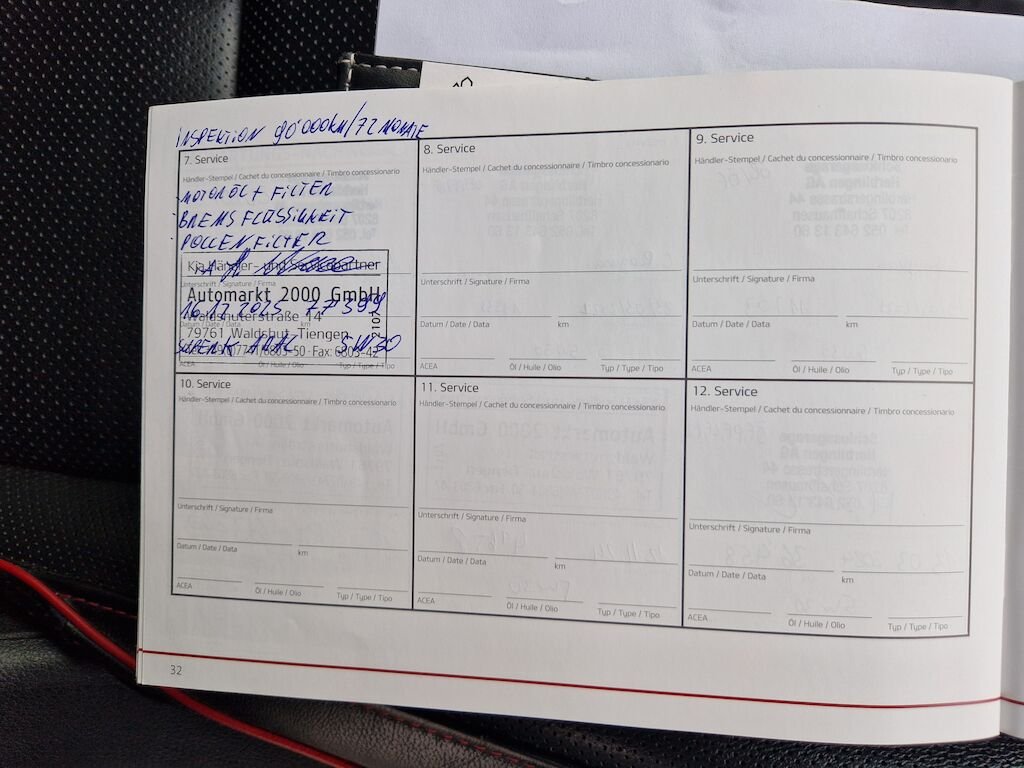 INSPEKTION 90'000KM/72 MONATE
7. Service
Händler-Stempel / Cachet du concessionnaire / Timbro concessionario
- MOTORÖL + FILTER
- BREMSFLÜSSIGKEIT
- POLLENFILTER
Kia Händler- und Servicepartner
Unterschrift / Signature / Firma
Automarkt 2000 GmbH
16.12.2025 77399
Waldshuterstraße 14
Datum / Date / Data km
79761 Waldshut-Tiengen
5W30
Fax: 6803-42
ACEA Öl / Huile / Olio Typ / Type / Tipo
8. Service
Händler-Stempel / Cachet du concessionnaire / Timbro concessionario
Unterschrift / Signature / Firma
Datum / Date / Data km
ACEA Öl / Huile / Olio Typ / Type / Tipo
9. Service
Händler-Stempel / Cachet du concessionnaire / Timbro concessionario
Unterschrift / Signature / Firma
Datum / Date / Data km
ACEA Öl / Huile / Olio Typ / Type / Tipo
10. Service
Händler-Stempel / Cachet du concessionnaire / Timbro concessionario
Unterschrift / Signature / Firma
Datum / Date / Data km
ACEA Öl / Huile / Olio Typ / Type / Tipo
11. Service
Händler-Stempel / Cachet du concessionnaire / Timbro concessionario
Unterschrift / Signature / Firma
Datum / Date / Data km
ACEA Öl / Huile / Olio Typ / Type / Tipo
12. Service
Händler-Stempel / Cachet du concessionnaire / Timbro concessionario
Unterschrift / Signature / Firma
Datum / Date / Data km
ACEA Öl / Huile / Olio Typ / Type / Tipo
32